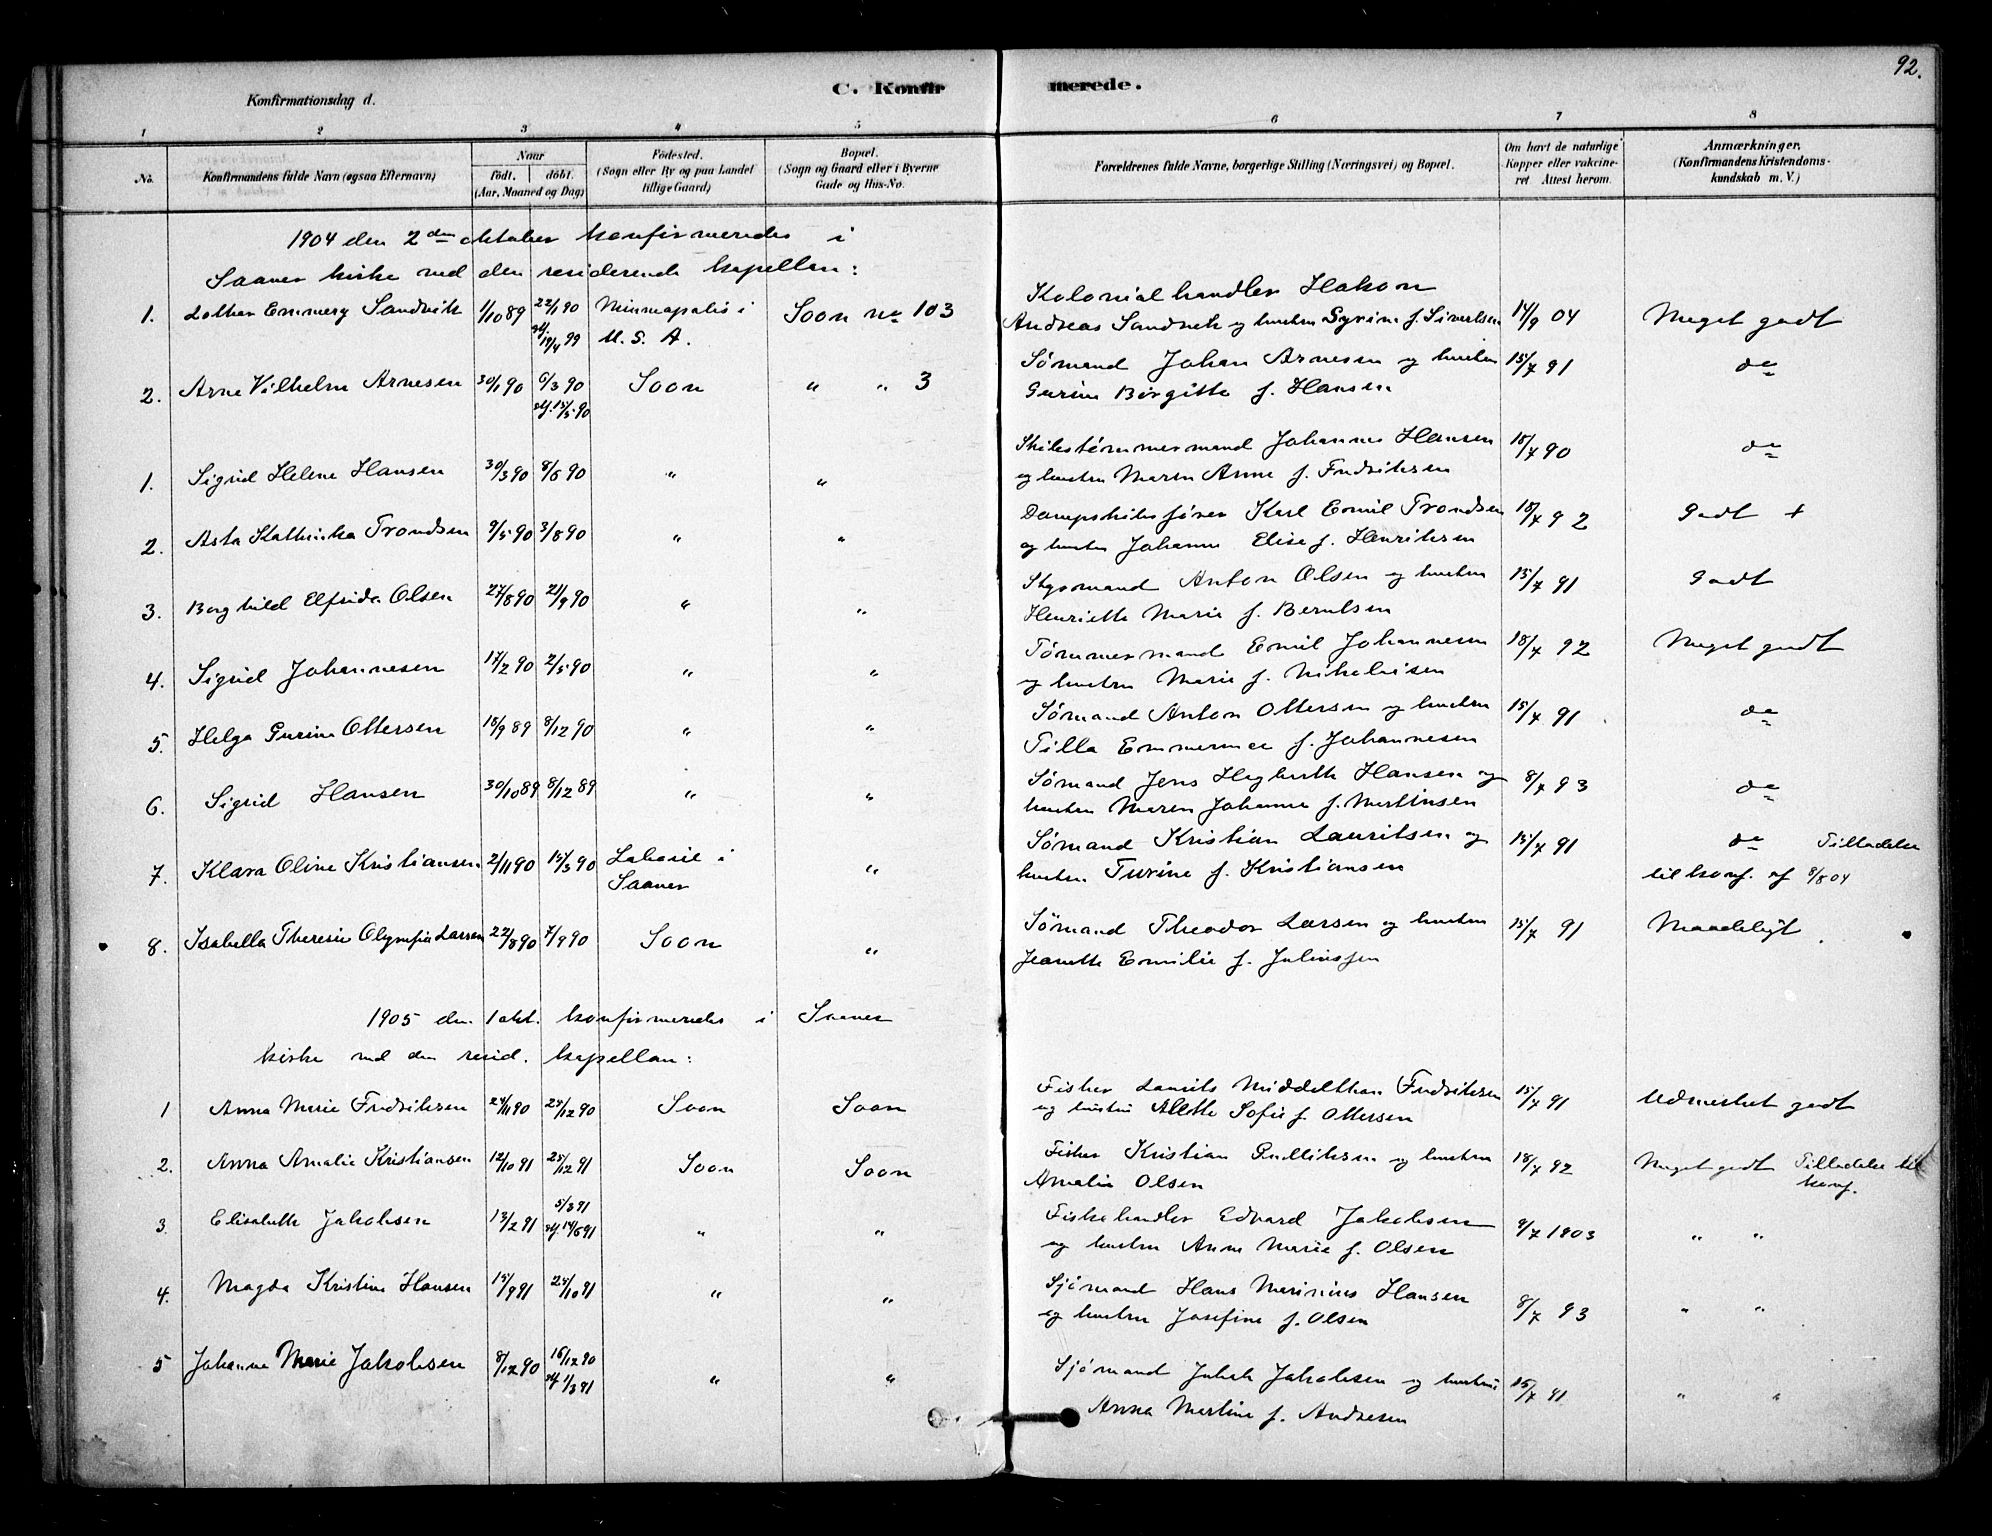 92.
Konfirmationsdag d.
C. Konfirmerede.
1 2 3 4 5 6 7 8
No. Konfirmandens fulde Navn (ogsaa Efternavn) Naar født. døbt. (Aar, Maaned og Dag) Fødested. (Sogn eller By og paa Landet tillige Gaard) Bopæl. (Sogn og Gaard eller i Byerne Gade og Hus-No. Forældrenes fulde Navne, borgerlige Stilling (Næringsvei) og Bopæl. Om havt de naturlige Kopper eller vaccineret Attest herom. Anmærkninger. (Konfirmandens Kristendomskundskab m. V.)
1904 den 2den oktober konfirmeredes i
Saaner kirke ved den residerende kapellan:
1. Lothar Emmery Sandvik 1/10 89 22/1 90 Minneapolis i Soon No 103 Kolonialhandler Hakon
stf. 19/4 99 U. S. A. Andreas Sandvik og hustru Syrine f. Sivertsen 14/9 04 Meget godt
2. Arne Vilhelm Arnesen 30/1 90 6/3 90 Soon " " 3 Sømand Johan Arnesen og hustru 15/7 91 do
stf. 15/5 90 Gurine Birgitte f. Hansen
1. Sigrid Helene Hansen 30/3 90 8/6 90 " " Skibstømmermand Johannes Hansen 18/7 90 do
og hustru Maren Anne f. Fredriksen
2. Asta Kathinka Trondsen 9/5 90 3/8 90 " " Dampskibsfører Karl Emil Trondsen 18/7 92 Godt +
og hustru Johanne Elise f. Henriksen
3. Borghild Elfrida Olsen 27/8 90 21/9 90 " " Styrmand Anton Olsen og hustru 15/7 91 Godt
Henriette Marie f. Berntsen
4. Sigrid Johannesen 17/2 90 2/5 90 " " Tømmermand Emil Johannesen 18/7 92 Meget godt
og hustru Marie f. Nikolaisen
5. Helga Gurine Ottersen 18/9 89 8/12 90 " " Sømand Anton Ottersen og hustru 15/7 91 do
Tilla Emmerense f. Johannesen
6. Sigrid Hansen 30/10 89 8/12 89 " " Sømand Jens Hegbarth Hansen og 8/7 93 do
hustru Maren Johanne f. Martinsen
7. Klara Oline Kristiansen 2/1 90 15/3 90 Labosie i " Sømand Kristian Lauritsen og 15/7 91 do Tilladelse
Saaner hustru Turine f. Kristiansen til konf. af 8/8 04
8. Isabella Therese Olympia Larsen 22/8 90 7/9 90 Soon " Sømand Theodor Larsen og hustru 15/7 91 Maadeligt
Jeanette Emilie f. Juliussen
1905 den 1 okt. konfirmeredes i Saaner
kirke ved den resid. kapellan:
1 Anna Marie Fredriksen 24/11 90 25/12 90 Soon Soon Fisker Laurits Middelthon Fredriksen 15/7 91 Udmerket godt
og hustru Alette Sofie f. Ottersen
2. Anna Amalie Kristiansen 12/10 91 25/12 91 Soon Soon Fisker Kristian Gulliksen og hustru 18/7 92 Meget godt Tilladelse til
Amalie Olsen konf.
3. Elisabeth Jakobsen 13/2 91 5/3 91 " " Fiskehandler Edvard Jakobsen 9/7 1903 " "
stf. 14/6 91 og hustru Anne Marie f. Olsen
4. Magda Kristine Hansen 15/9 91 25/10 91 " " Sjömand Hans Marinius Hansen 8/7 93 " "
og hustru Josefine f. Olsen
5 Johanne Marie Jakobsen 8/12 90 16/12 90 " " Sjömand Jakob Jakobsen og hustru 15/7 91 " "
stf 1/3 91 Anna Martine f. Andresen